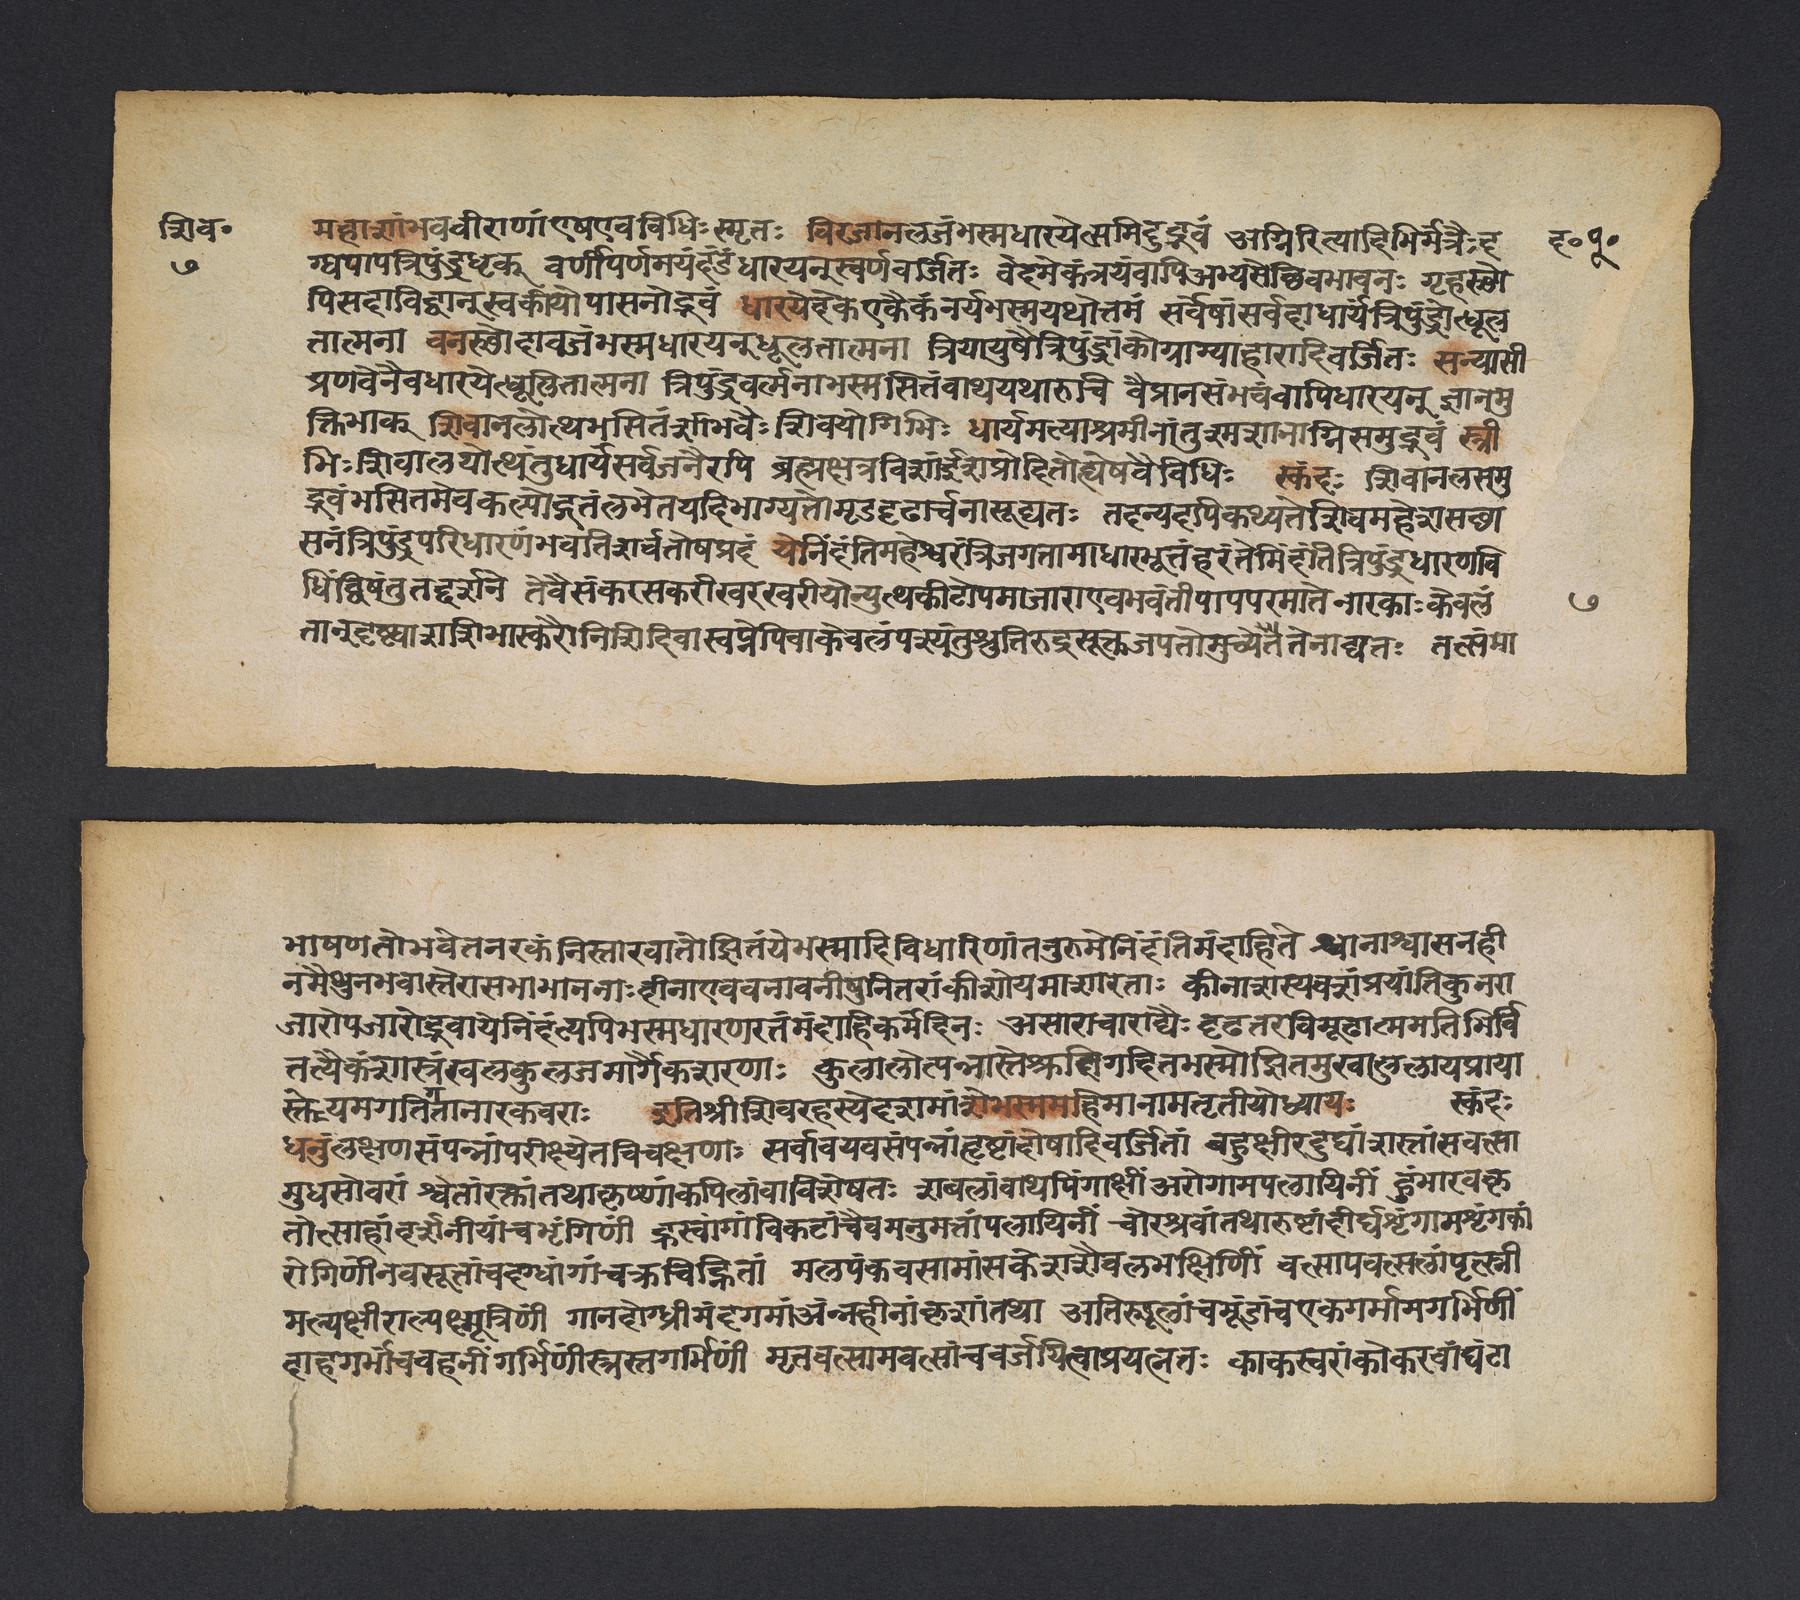 शिव॰
७
द॰ १॰
महाशांभववीराणांएषएवविधिः स्मृतः विरजानलजंभस्मधारयेत्समिदुद्भवं अग्निरित्यादिभिर्मंत्रैः द
ग्धपापत्रिपुंड्रधृक् वर्णीपर्णमयंदंडंधारयन्स्वर्णवर्जितः वेदमेकंत्रयंवापिअभ्यसेच्छिवभावनः गृहस्थो
पिसदाविद्वान्स्वकीयोपासनोद्भवं धारयेदेकएकैकंनर्यभस्मयथोत्तमं सर्वेषांसर्वदाधार्यंत्रिपुंड्रोत्धूल
तात्मना वनस्थोदावजंभस्मधारयन्धूलतात्मना त्रियायुषैत्रिपुंड्रांकोग्राम्याहारादिवर्जितः सन्यासी
प्रणवेनैवधारयेत्धूलितात्मना त्रिपुंड्रवर्त्मनाभस्मसितंवाथयथारुचि वैप्रानसंभवंवापिधारयन् ज्ञानमु
क्तिभाक् शिवानलोत्थभसितंशांभवैः शिवयोगिभिः धार्यमत्याश्रमीनांतुश्मशानाग्निसमुद्भवं स्त्री
भिः शिवालयोत्थंतुधार्यंसर्वजनैरपि ब्रह्मक्षत्रविशांईशप्रोदितोह्येषवैविधिः स्कंदः शिवानलसमु
द्भवंभसितमेवकल्पोद्गतंलभेतयदिभाग्यतोमृडदृढार्चनासूद्यतः तदन्यदपिकथ्यतेशिवमहेशसच्छा
सनंत्रिपुंड्रपरिधारणंभवतिशर्वतोषप्रदं येनिंदंतिमहेश्वरंत्रिजगतामाधारभूतंहरंतेमिंदंतित्रिपुंड्रधारणवि
धिंद्विषंतुतद्दर्शने तेवैसंकरसकरीखरखरीयोन्युत्थकीटोपमाजाराएवभवंतीपापपरमातेनारकाः केवलं
७
तान्दृष्ट्वाशशिभास्करौनिशिदिवास्वप्नेपिवाकेवलंपश्यंतुश्रुतिरुद्रसूक्तजपतोमुच्येतैतेनाद्यतः तत्संमा
भाषणतोभवेतनरकंनिस्तारवातोझितंयेभस्मादिविधारिणांतनुरुमेनिंदंतिमंदाहिते श्वानाश्वासनही
नमैथुनभवास्तेरासभाभाननाः हीनाएववनावनीषुनितरांकीशोयमाशारताः कीनाशस्यवशंप्रयांतिकुनरा
जारोपजारोद्भवायेनिंदंत्यपिभस्मधारणरतंमंदाहिकर्मेदिनः असाराचाराद्यैः दृढतरविमूढात्ममतिभिर्वि
तत्यैकंशास्त्रंखलकुलजमार्गैकशरणाः कुलालोत्पन्नास्तेक्कलिगहितभस्मोझितमुखालुलायप्राया
स्तेयमगतिंगतानारकवराः इतिश्रीशिवरहस्येदशमांशेभस्ममहिमानामतृतीयोध्यायः स्कंदः
धेनुंलक्षणसंपन्नांपरीक्ष्येतविचक्षणाः सर्वावयवसंपन्नांहृष्टांदोषादिवर्जितां बहुक्षीरदुघांशस्तांसवत्सा
मुधसोवरां श्वेतांरक्तांतथाकृष्णांकपिलांवाविशेषतः शबलांवाथपिंगाक्षींअरोगामपलायिनीं हुंभारवकृ
तोत्साहांदर्शनीयांचभृंगिणीं ह्रस्वांगांविकटांचैवमनुमतांपलायिनीं चोरश्रवांतथारुष्टांदीर्घशृंगामशृंगकां
रोगिणींनवसूतांचदग्धांगांचक्रचिह्नितां मलपंकवसामांसकेशशैवलभक्षिणीं वत्सापवत्सलांपृत्स्नी
मल्पक्षीराल्पक्ष्मूत्रिणीं गानदोग्ध्रीमंदगमांअंन्नहीनांकृशांतथा अतिस्थूलांचमूंडांचएकगर्भामगर्भिणीं
दाहगर्भांचवहनींगर्भिणींस्त्रस्तगर्भिणीं मृतवत्सामवत्सांचवर्जयित्वाप्रयत्नतः काकस्वरांकोकरवांघंटा